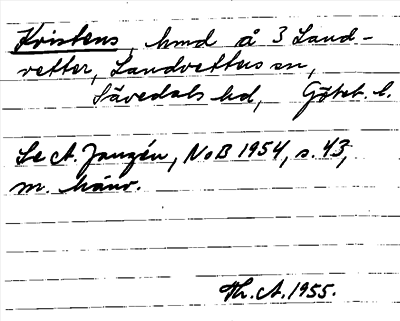 Kristens, hmd å 3 Land-
vetter, Landvetters sn,
Sävedals hd, Göteb. l.
Se A. Janzén, NoB 1954, s. 43,
m. hänv.
Th. A. 1955.